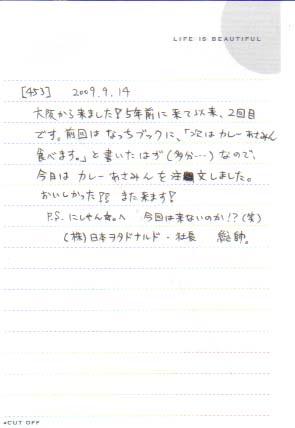 LIFE IS BEAUTIFUL
[453] 2009.9.14
大阪から来ました!5年前に来て以来、2回目
です。前回は なっちブックに、「次は カレーあさみん
食べます。」と書いたはず(多分…)なので、
今日は カレーあさみんを 注文しました。
おいしかった!! また来ます!
P.S. にしやん☆。へ 今回は来ないのか!?(笑)
(株)日本ヲタドナルド・社長 総帥。
CUT OFF